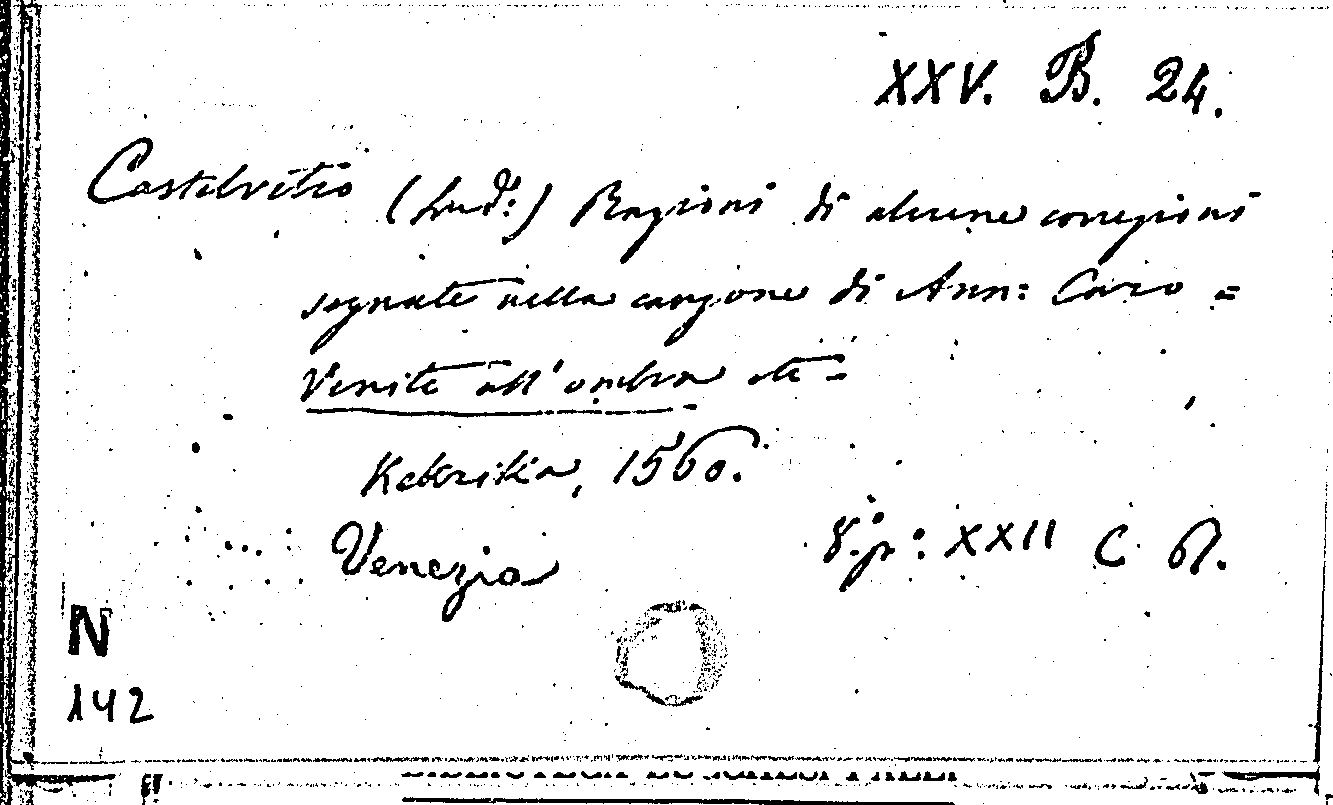 XXV. B. 24.
Castelvetro (Lud:) Ragioni di alcune correzioni
segnate nella canzone di Ann: Caro =
Venite all'ombra etc =
1560.
Venezia
8.° p.°: XXII C
N
142